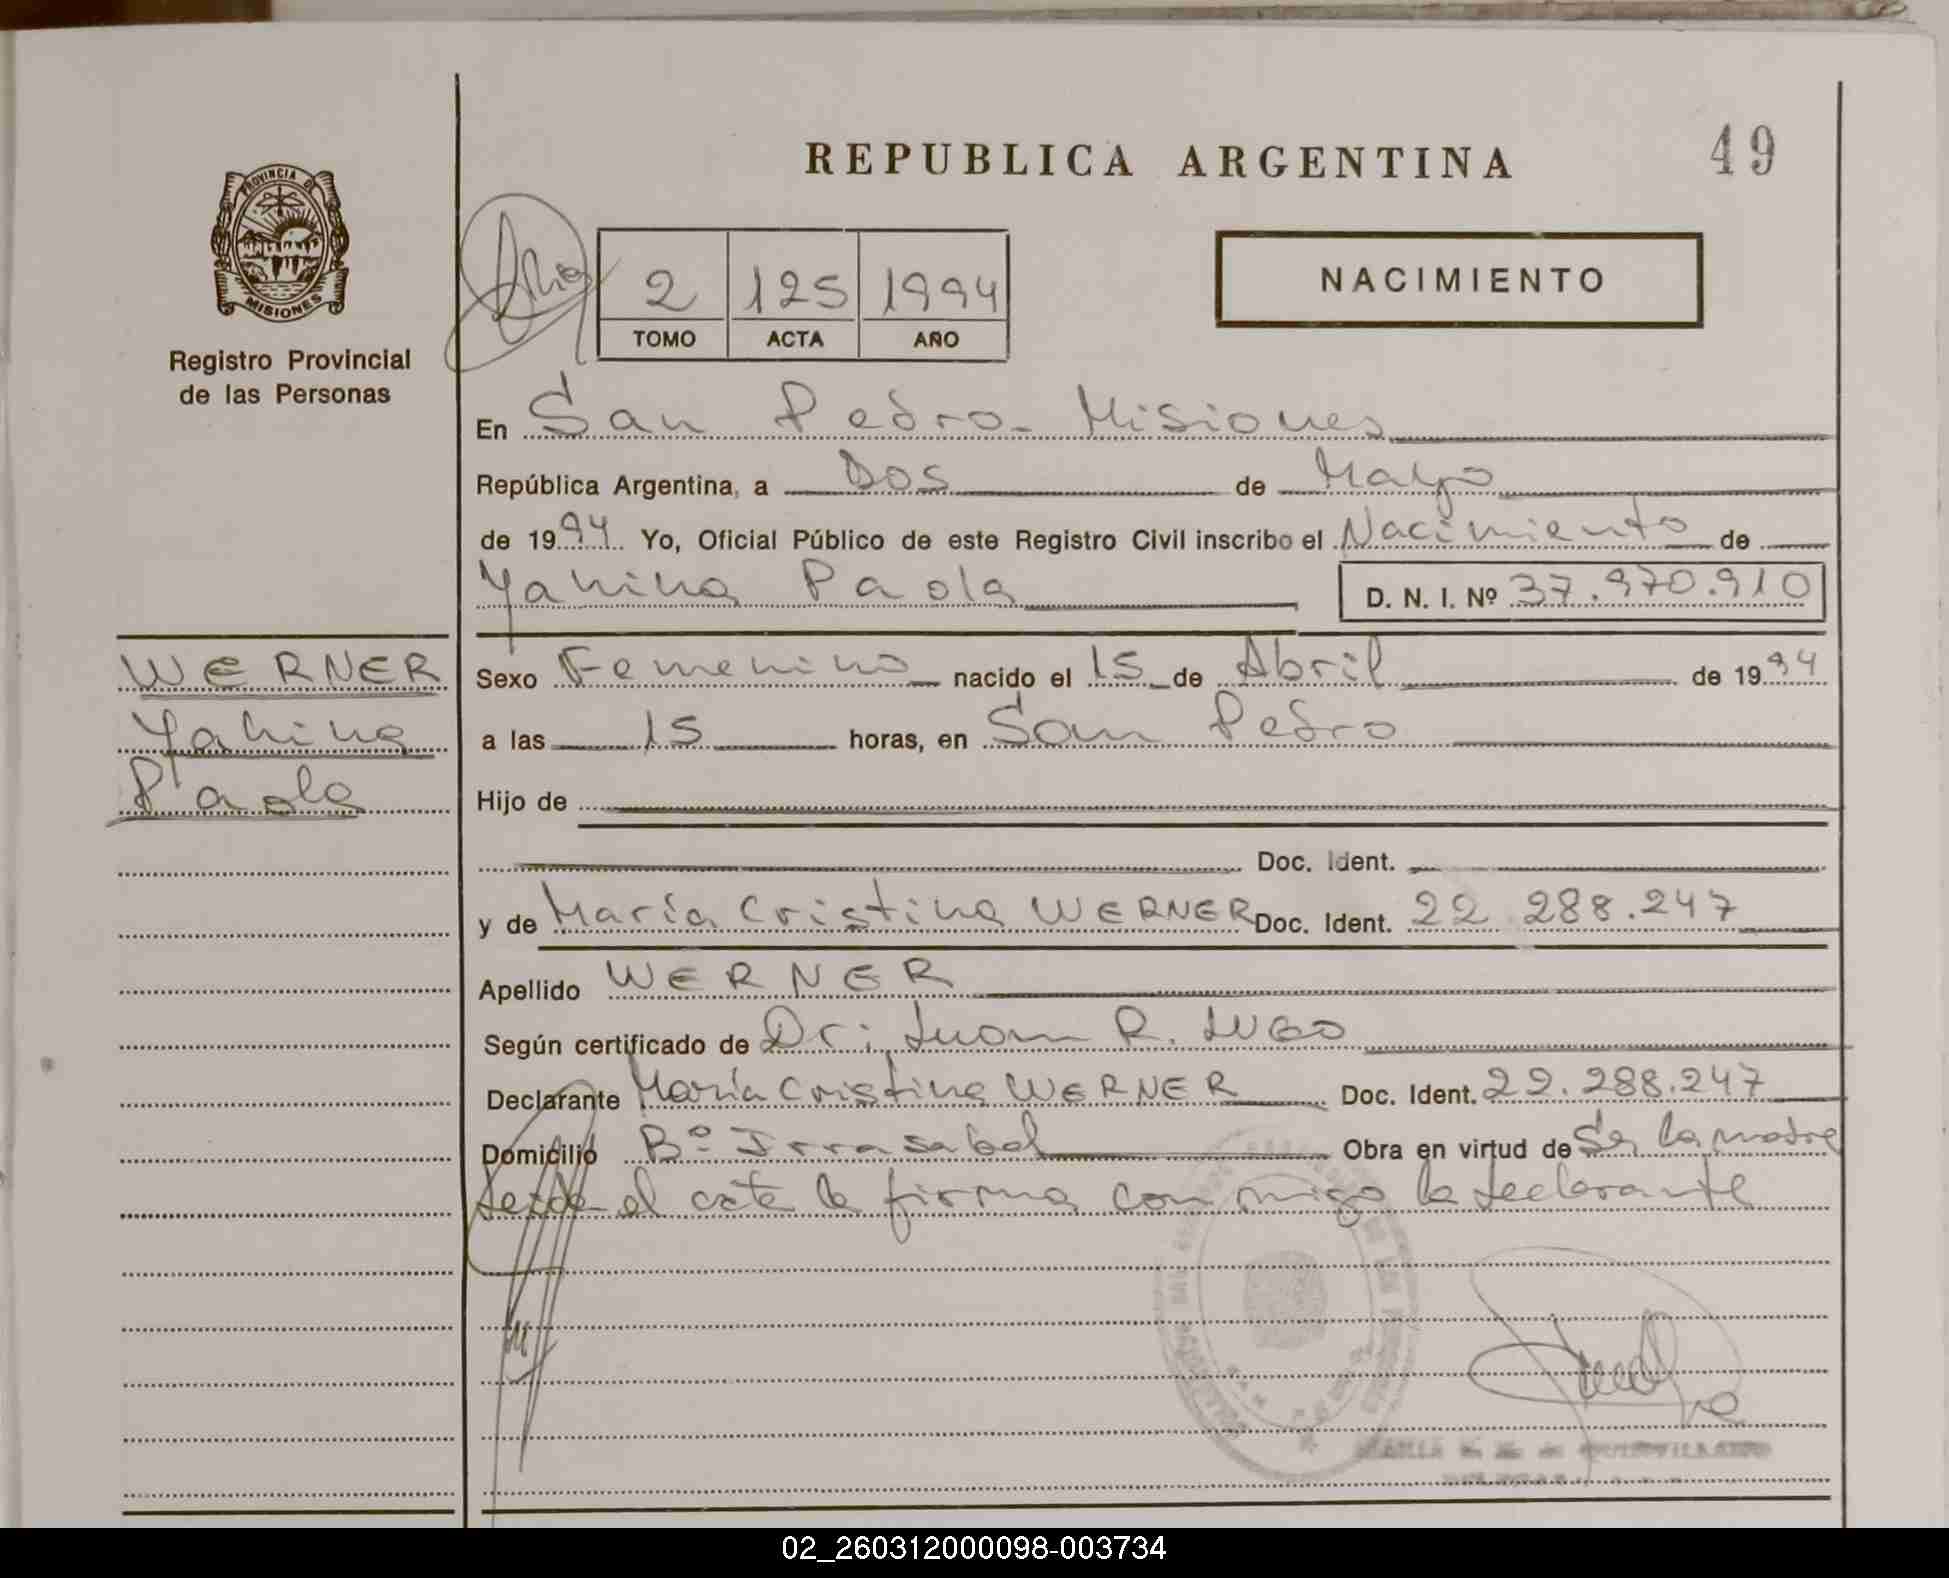 REPUBLICA ARGENTINA
49
PROVINCIA DE
MISIONES
Registro Provincial
de las Personas
2 125 1994
TOMO ACTA AÑO
NACIMIENTO
En San Pedro - Misiones
República Argentina, a Dos de Mayo
de 1994. Yo, Oficial Público de este Registro Civil inscribo el Nacimiento de
Yanina Paola D. N. I. Nº 37.970.910
WERNER
Yanina
Paola
Sexo Femenino nacido el 15 de Abril de 1994
a las 15 horas, en San Pedro
Hijo de
Doc. Ident.
y de María Cristina WERNER Doc. Ident. 22 288.247
Apellido WERNER
Según certificado de Dr: Juan R. LUGO
Declarante María Cristina WERNER Doc. Ident. 22.288.247
Domicilió Bº Irrasabal Obra en virtud de Ser la madre
Leida el acta la firma conmigo la declarante
02_260312000098-003734